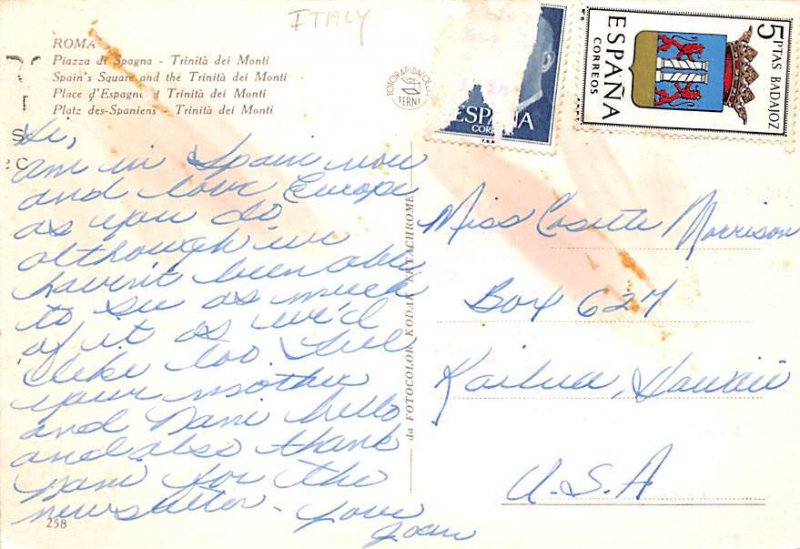 ITALY
ROMA
Piazza di Spagna - Trinità dei Monti
Spain's Square and the Trinità dei Monti
Place d'Espagne et Trinità dei Monti
Platz des-Spaniens - Trinità dei Monti
FOTORAPIDACOLOR
TERNI
ESPAÑA
CORREOS
ESPAÑA
CORREOS
5 PTAS BADAJOZ
Hi,
am in Spain now
and love Europe
as you do
although we
haven't been able
to see as much
of it as we'd
like too. Tell
your mother
and Dani hello
and also thank
Dani for the
newsletter - Love
Joan
258
da FOTOCOLOR KODAK EKTACHROME
Miss Cosette Morrison
Box 627
Kailua, Hawaii
U.S.A